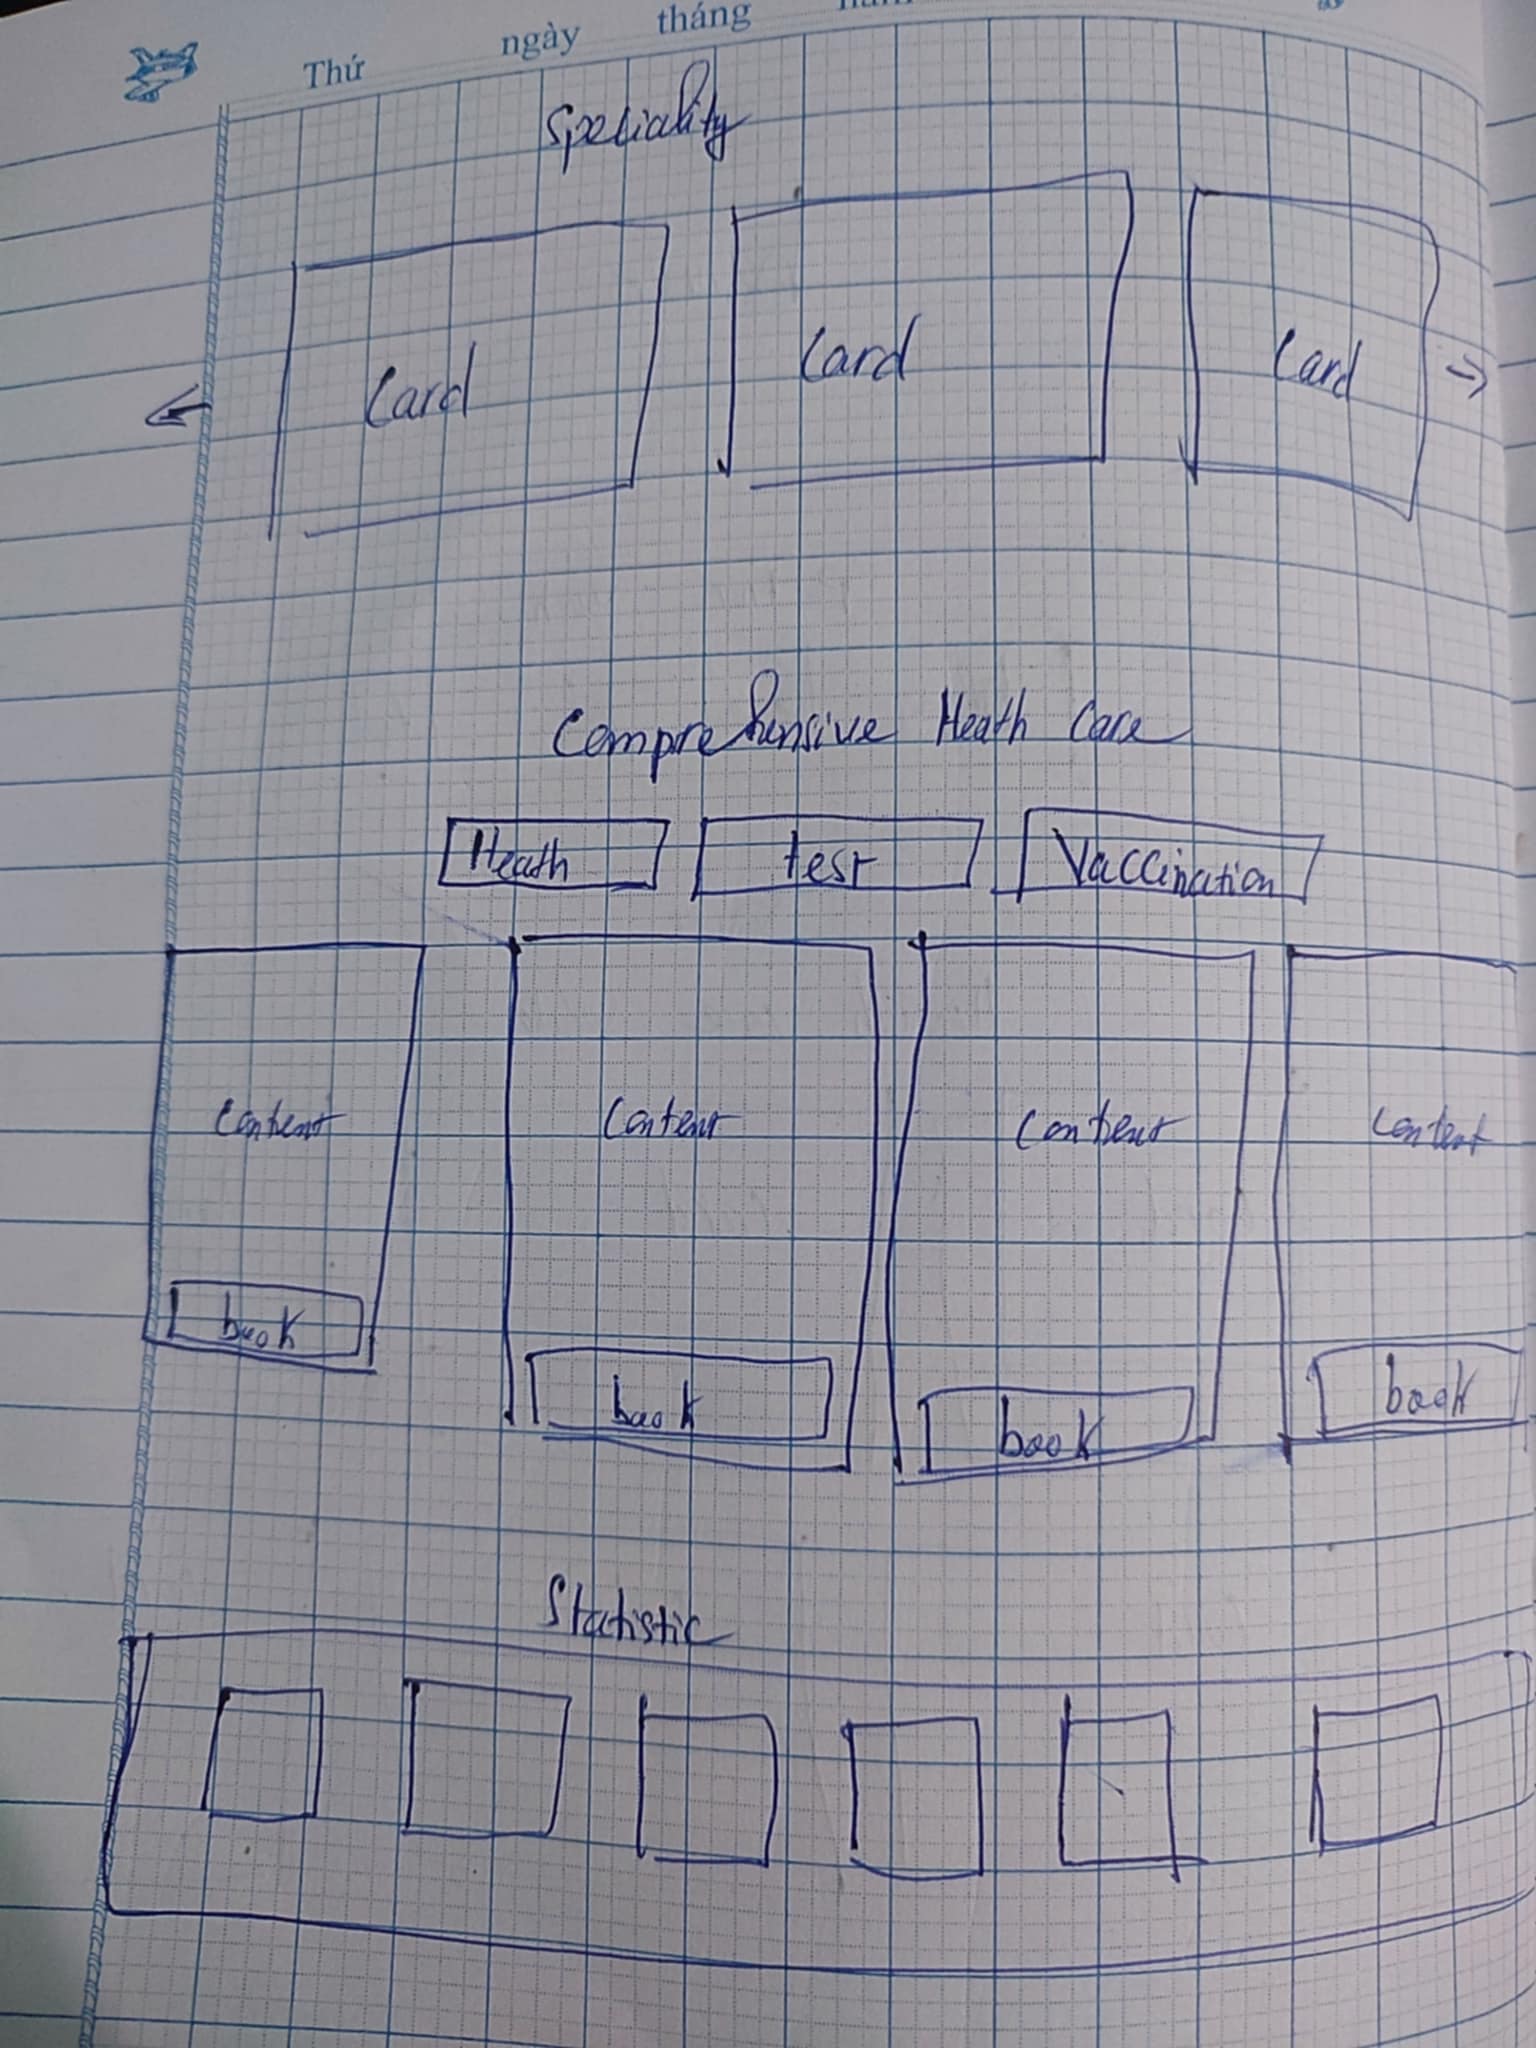 Thứ ngày tháng năm
Speciality
Card Card Card
Comprehensive Heath Care
Heath test Vaccination
Content Content Content Content
book book book book
Statistic